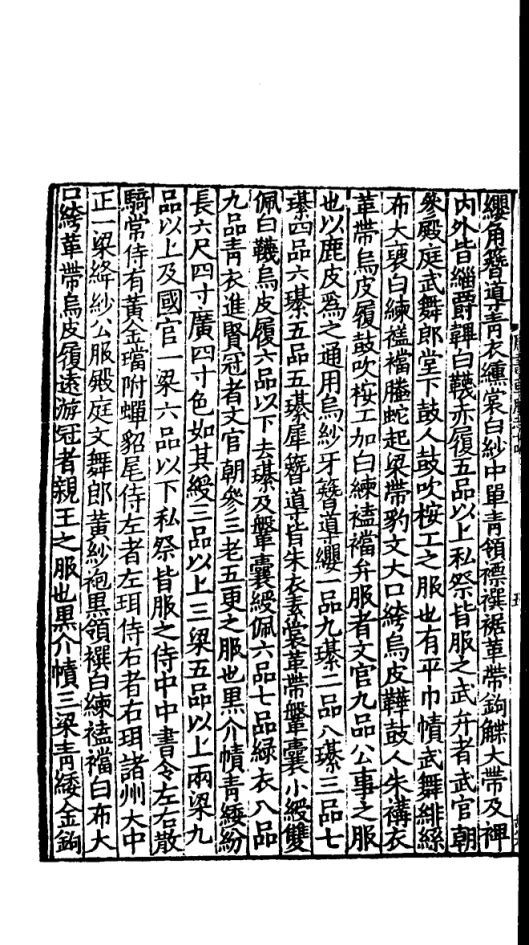 纓角簪導青衣纁裳白紗中單青領褾襈裾革帶鉤䚢大帶及褌
内外皆緇爵韠白韈赤履五品以上私祭皆服之武弁者武官朝
參殿庭武舞郎堂下鼓人鼓吹桉工之服也有平巾幘武舞緋絲
布大褎白練𧛾襠螣蛇起梁帶豹文大口絝烏皮鞾鼓人朱褠衣
革帶烏皮履鼓吹桉工加白練𧛾襠弁服者文官九品公事之服
也以鹿皮爲之通用烏紗牙簪導纓一品九璂二品八璂三品七
璂四品六璂五品五璂犀簪導皆朱衣素裳革帶鞶囊小綬雙
佩白韈烏皮履六品以下去璂及鞶囊綬佩六品七品綠衣八品
九品青衣進賢冠者文官朝參三老五更之服也黒介幘青緌紛
長六尺四寸廣四寸色如其綬三品以上三梁五品以上兩梁九
品以上及國官一梁六品以下私祭皆服之侍中中書令左右散
騎常侍有黃金璫附蟬貂尾侍左者左珥侍右者右珥諸州大中
正一梁絳紗公服殿庭文舞郎黃紗袍黒領襈白練𧛾襠白布大
口絝革帶烏皮履遠游冠者親王之服也黒介幘三梁青緌金鉤